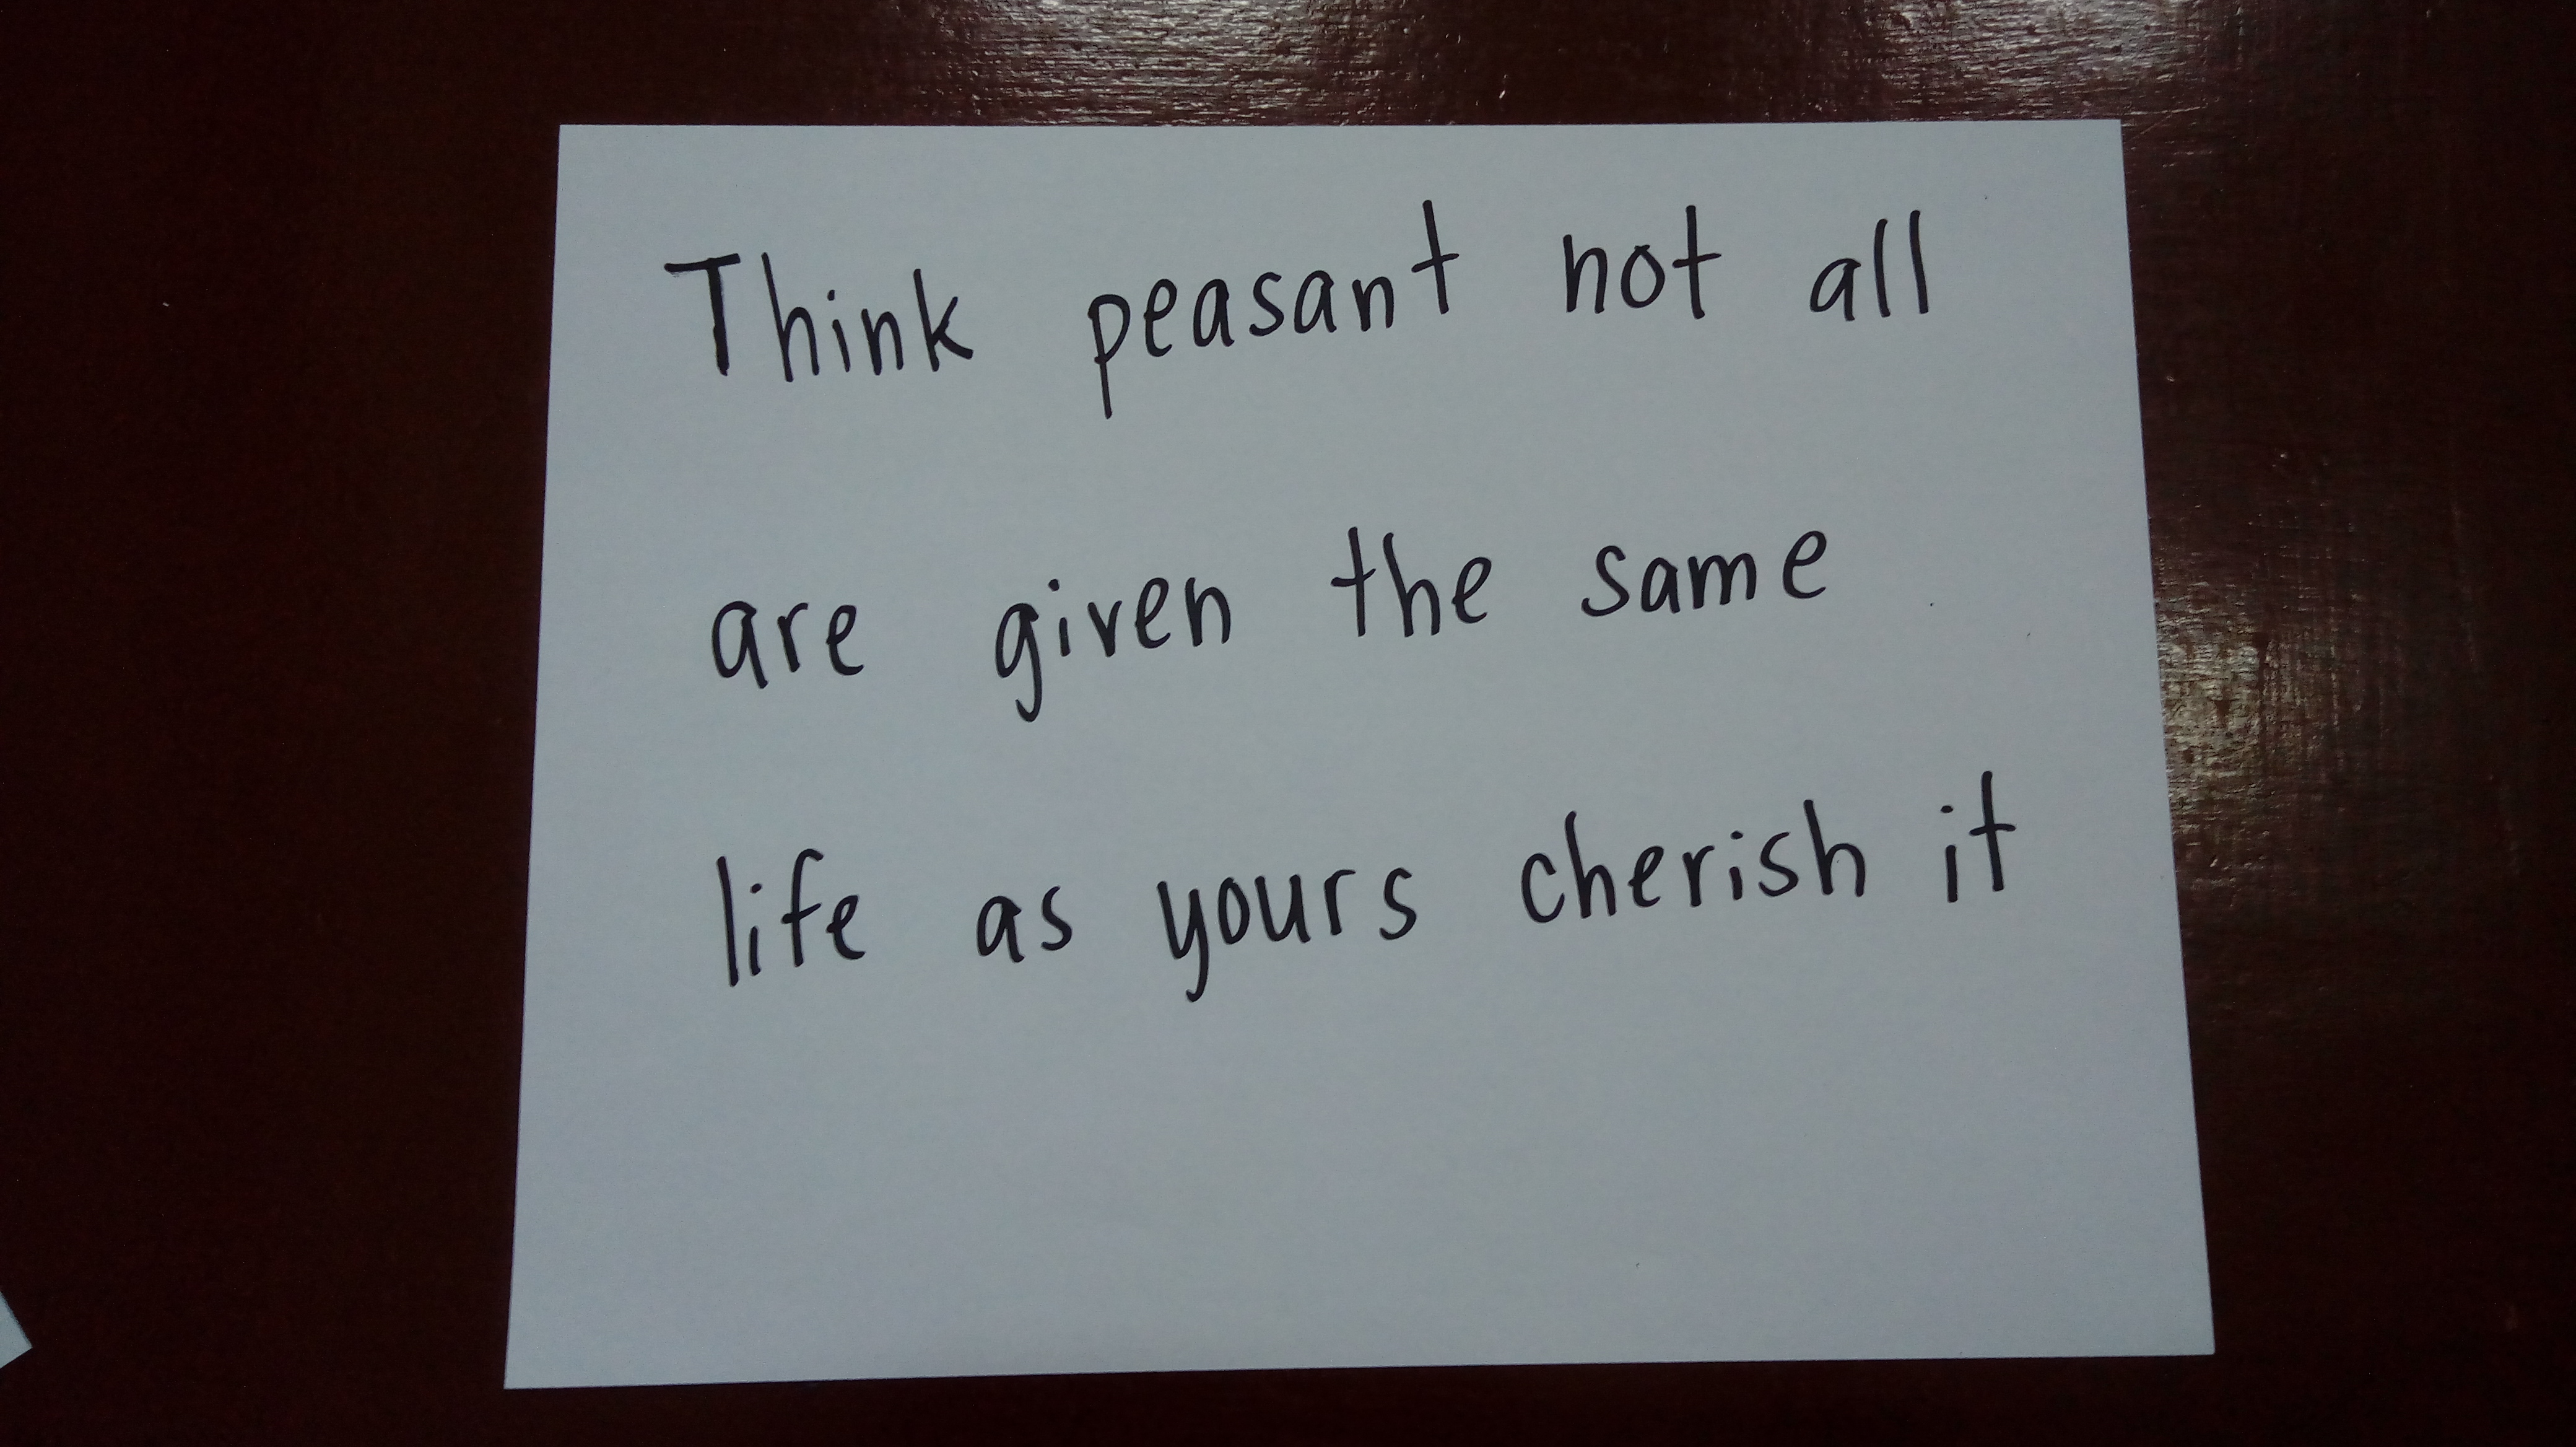 Think peasant not all
are given the same
life as yours cherish it